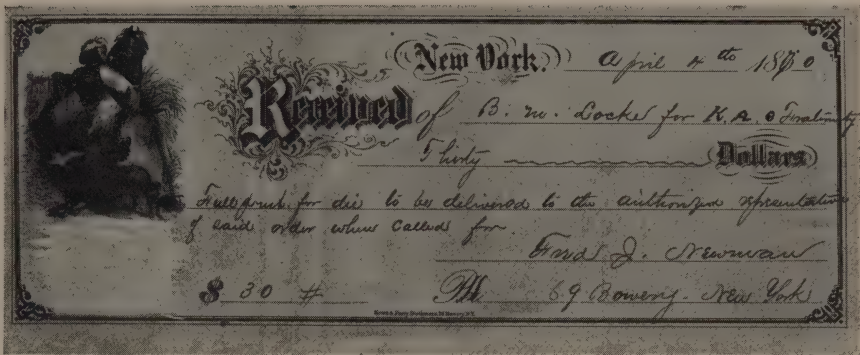 New York. April 4th 1870
Received of B. M. Locke for K. A. O Fraternity
Thirty Dollars
Full price for die to be delivered to the authorized representative
of said order when called for.
Fred J. Newman
$ 30 # 69 Bowery. New York